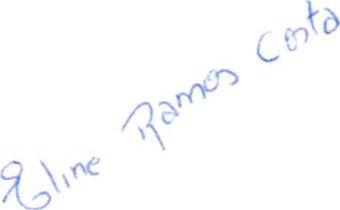 Eline Ramos Costa